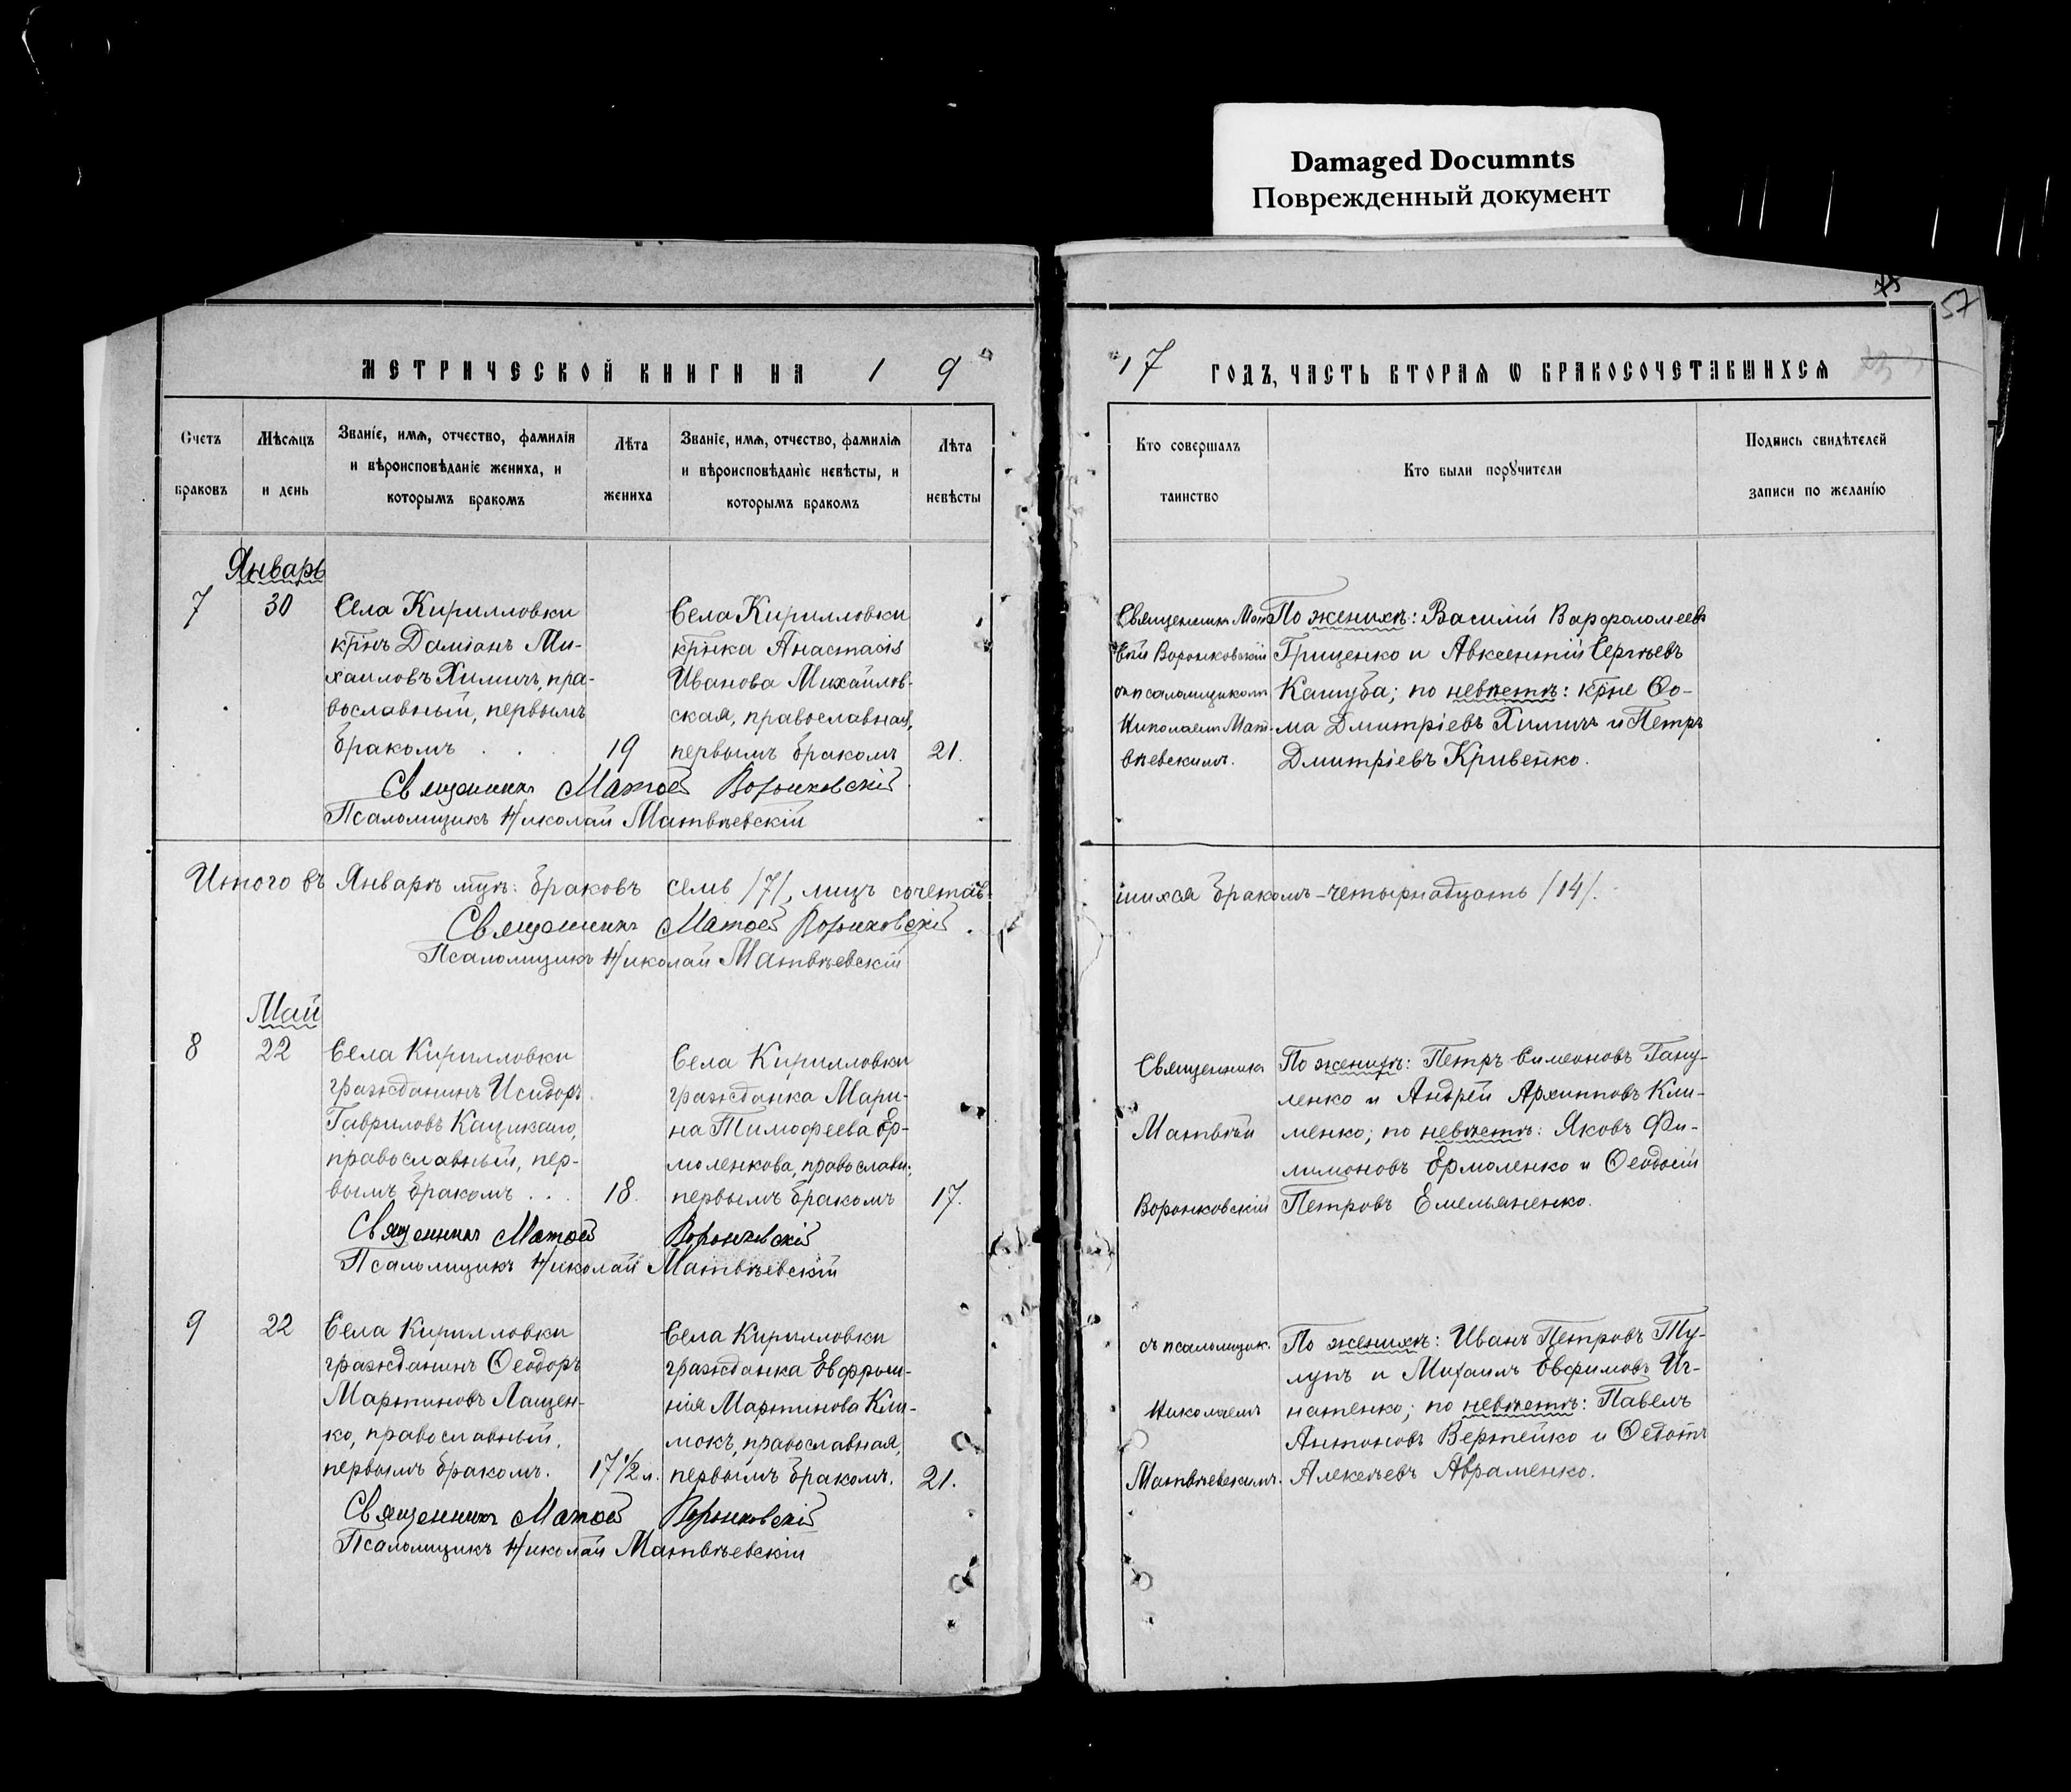 Damaged Documnts
Поврежденный документ
57
МЕТРИЧЕСКОЙ КНИГИ НА 1 9
17 ГОДЪ, ЧАСТЬ ВТОРАЯ Ѡ БРАКОСОЧЕТАВШИХСЯ
Счетъ
браковъ
Мѣсяцъ
и день
Званіе, имя, отчество, фамилія
и вѣроисповѣданіе жениха, и
которымъ бракомъ
Лѣта
жениха
Званіе, имя, отчество, фамилія
и вѣроисповѣданіе невѣсты, и
которымъ бракомъ
Лѣта
невѣсты
Кто совершалъ
таинство
Кто были поручители
Подпись свидѣтелей
записи по желанію
Январь
7
30
Села Кирилловки
кр̅нъ Даміанъ Ми-
хаиловъ Химичъ, пра-
вославный, первымъ
бракомъ . . .
19
Села Кирилловки
кр̅нка Анастасія
Иванова Михайлов-
ская, православная,
первымъ бракомъ
21.
Священникъ Мат
ѳей Воронковскій
съ псаломщикомъ
Николаемъ Мат-
вѣевскимъ.
По женихѣ: Василій Варфоломеевъ
Гриценко и Авксентій Сергѣевъ
Кашуба; по невѣстѣ: кр̅не Ѳо-
ма Дмитріевъ Химичъ и Петръ
Дмитріевъ Кривенко.
Священникъ Матѳей Воронковскій
Псаломщикъ Николай Матвѣевскій
Итого въ Январѣ мцѣ: браковъ семь /7/, лицъ сочетав-
шихся бракомъ – четырнадцать /14/.
Священникъ Матѳей Воронковскій.
Псаломщикъ Николай Матвѣевскій
Май
8
22
Села Кирилловки
гражданинъ Исидоръ
Гавриловъ Кацикало,
православный, пер-
вымъ бракомъ . . .
18.
Села Кирилловки
гражданка Мари-
на Тимофеева Ер-
моленкова, православн:,
первымъ бракомъ
17.
Священникъ
Матвѣй
Воронковскій
По женихѣ: Петръ Симеоновъ Гану-
ленко и Андрей Архиповъ Кли-
менко; по невѣстѣ: Яковъ Фи-
лимоновъ Ермоленко и Ѳеодосій
Петровъ Емельяненко.
Священникъ Матѳей Воронковскій
Псаломщикъ Николай Матвѣевскій
9
22
Села Кирилловки
гражданинъ Ѳеодоръ
Мартиновъ Лащен-
ко, православный,
первымъ бракомъ.
17 1/2 л.
Села Кирилловки
гражданка Евфроси-
нія Мартинова Кли-
мокъ, православная,
первымъ бракомъ.
21.
съ псаломщик.
Николаемъ
Матвѣевскимъ.
По женихѣ: Иванъ Петровъ Ту-
лупъ и Михаилъ Евфимовъ Иг-
натенко; по невѣстѣ: Павелъ
Антоновъ Вертейко и Ѳедотъ
Алексѣевъ Авраменко.
Священникъ Матѳей Воронковскій
Псаломщикъ Николай Матвѣевскій